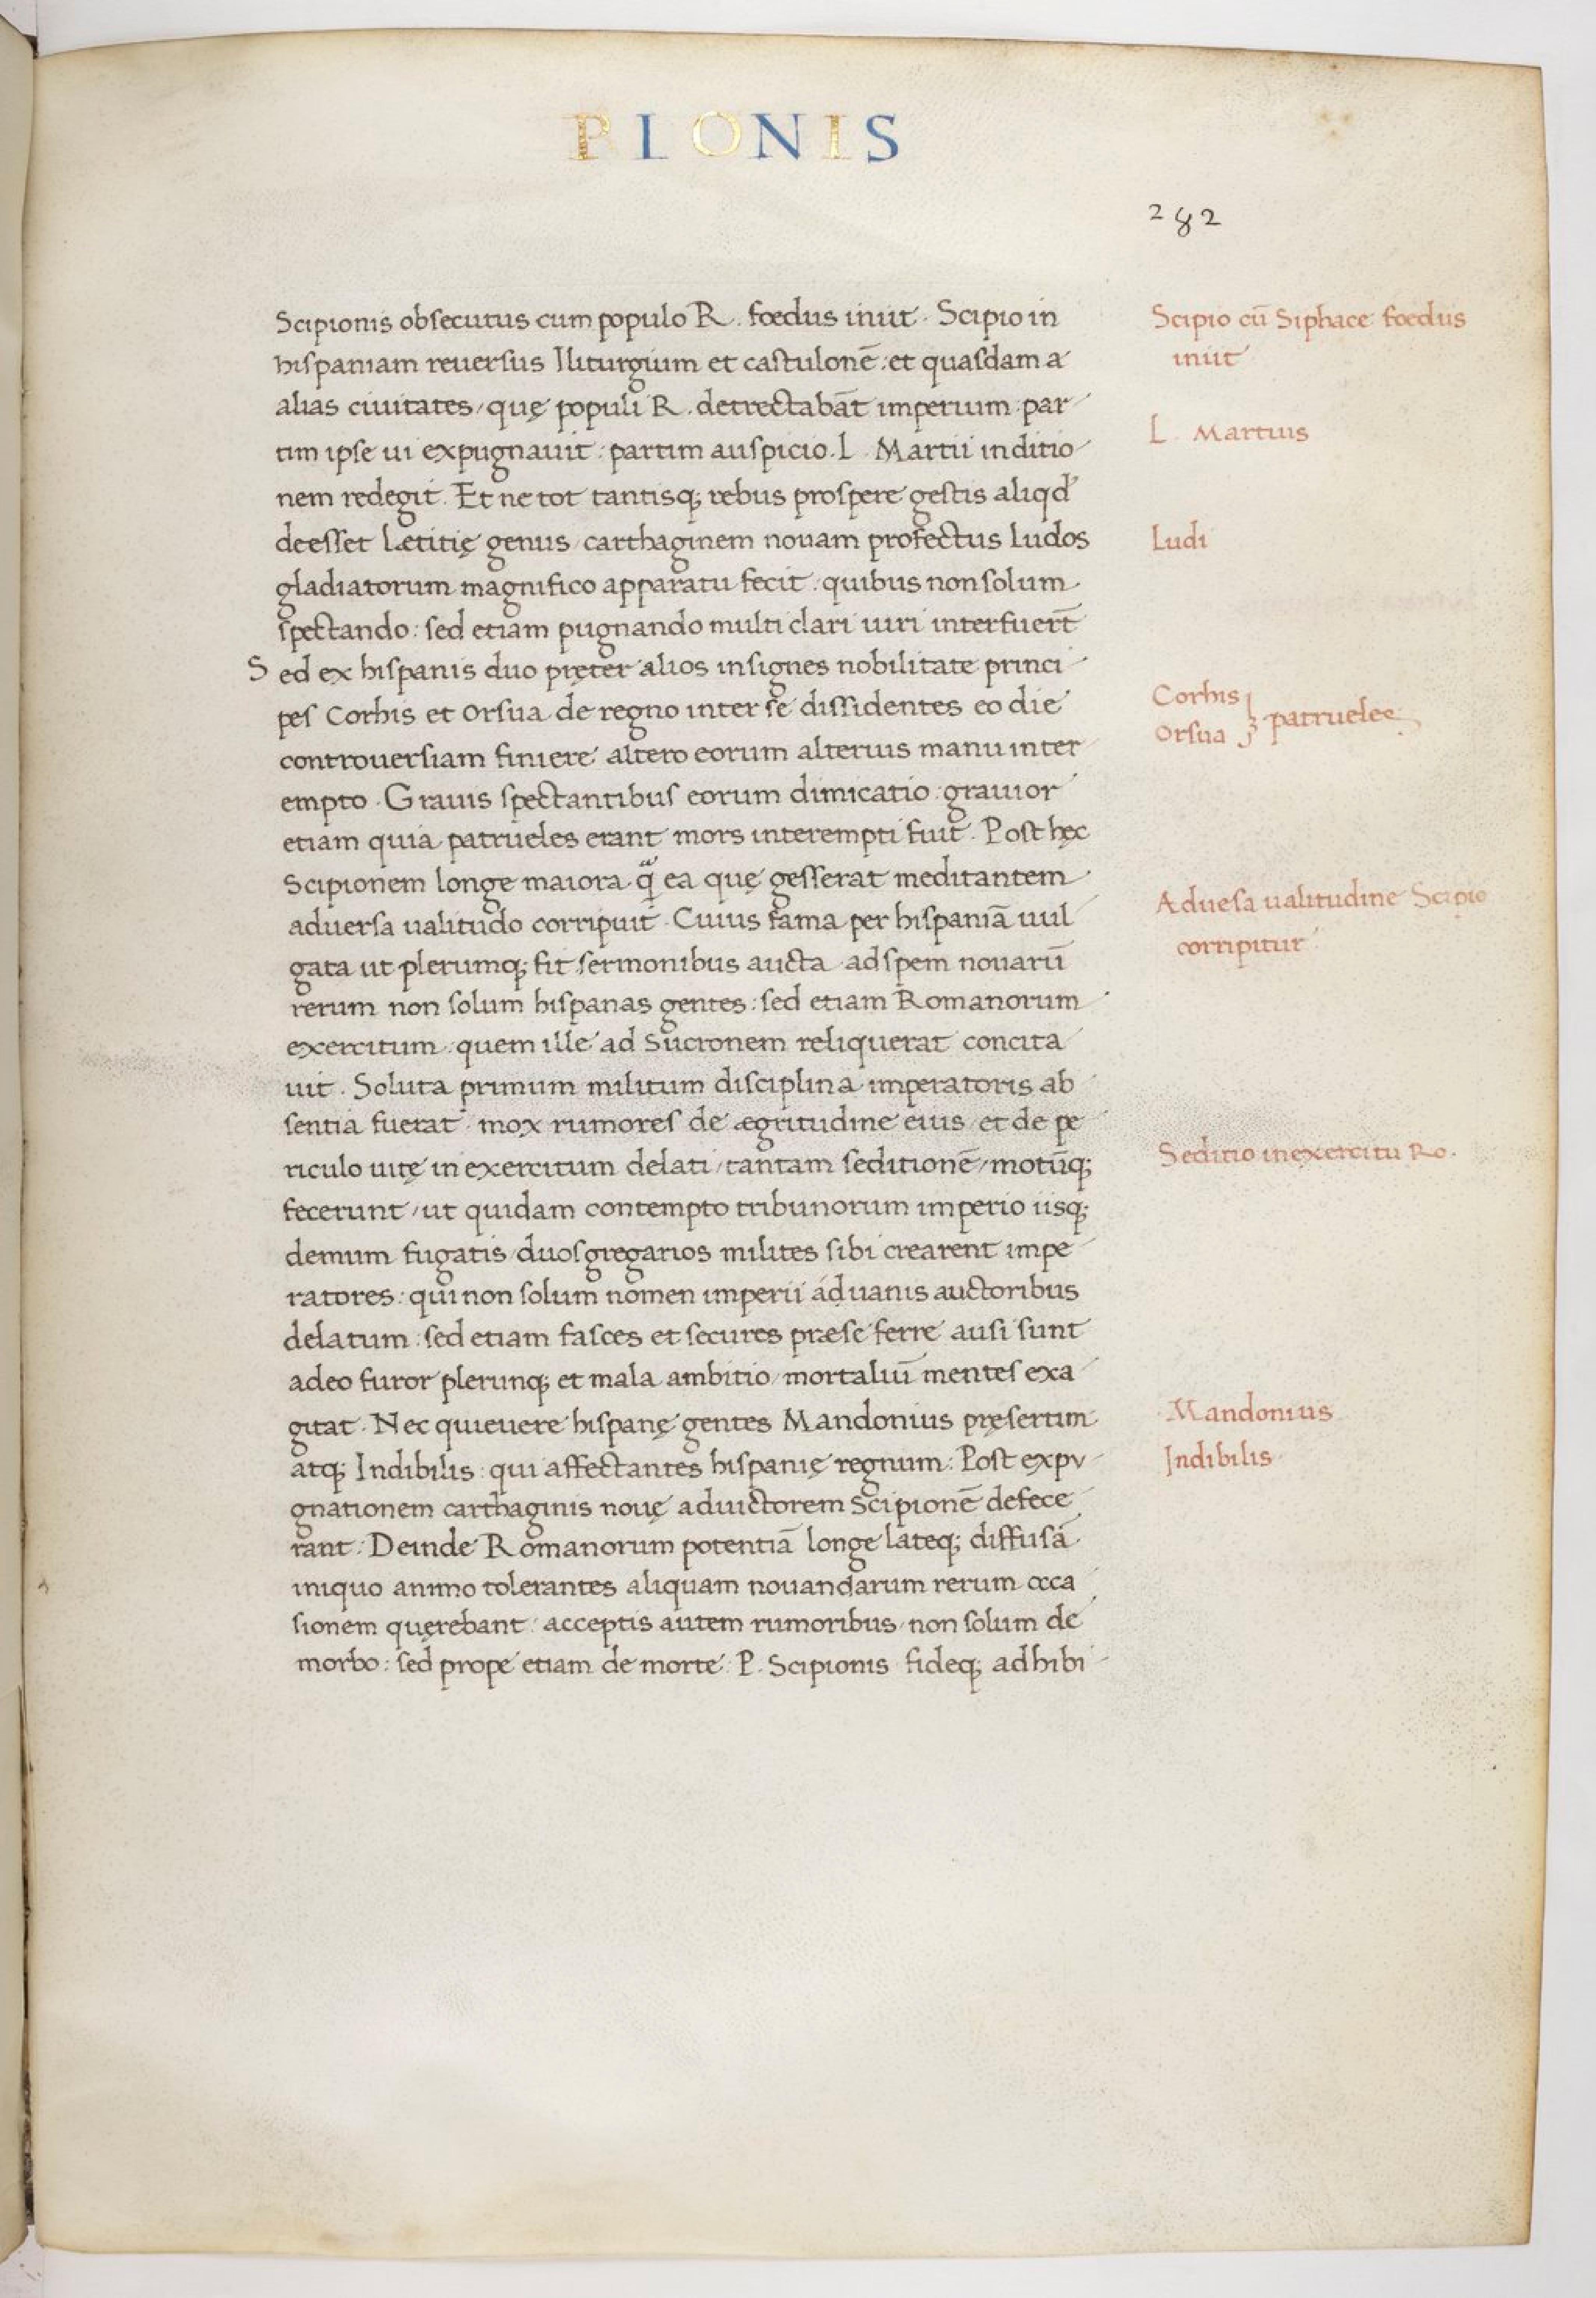 PIONIS
282
Scipionis obsecutus cum populo R. fœdus iniit. Scipio in
hispaniam reuersus Iliturgium et castulonē: et quasdam a
alias ciuitates, quę populi R. detrectabāt imperium: par
tim ipse ui expugnauit: partim auspicio. L. Martii in ditio
nem redegit. Et ne tot tantisq; rebus prospere gestis aliqd
deesset lætitię genus, carthaginem nouam profectus ludos
gladiatorum magnifico apparatu fecit: quibus non solum
spectando: sed etiam pugnando multi clari uiri interfuert̄
Sed ex hispanis duo pręter alios insignes nobilitate princi
pes Corbis et Orsua de regno inter se dissidentes eo die
controuersiam finiere altero eorum alterius manu inter
empto. Grauis spectantibus eorum dimicatio: grauior
etiam quia patrueles erant mors interempti fuit. Post hęc
Scipionem longe maiora q̈ ea quę gesserat meditantem
aduersa ualitudo corripuit. Cuius fama per hispaniā uul
gata ut plerumq; fit sermonibus aucta ad spem nouarū
rerum non solum hispanas gentes: sed etiam Romanorum
exercitum: quem ille ad Sucronem reliquerat concita
uit. Soluta primum militum disciplina imperatoris ab
sentia fuerat: mox rumores de ægritudine eius, et de pe
riculo uitę in exercitum delati, tantam seditionē, motūq;
fecerunt, ut quidam contempto tribunorum imperio iisq;
demum fugatis duos gregarios milites sibi crearent impe
ratores: qui non solum nomen imperii ad uanis auctoribus
delatum: sed etiam fasces et secures præ se ferre ausi sunt
adeo furor plerunq; et mala ambitio, mortaliū mentes exa
gitat. Nec quieuere hispanę gentes Mandonius pręsertim
atq; Indibilis: qui affectantes hispanię regnum: Post expu
gnationem carthaginis nouę ad uictorem Scipionē defece
rant: Deinde Romanorum potentiā longe lateq; diffusā
iniquo animo tolerantes aliquam nouandarum rerum occa
sionem quęrebant: acceptis autem rumoribus, non solum de
morbo: sed prope etiam de morte. P. Scipionis fideq; adhibi
Scipio cū Siphace fœdus
iniit
L. Martius
Ludi
Corbis
Orsua } patruelee
Aduesa ualitudine Scipio
corripitur
Seditio in exercitu Ro.
Mandonius
Indibilis